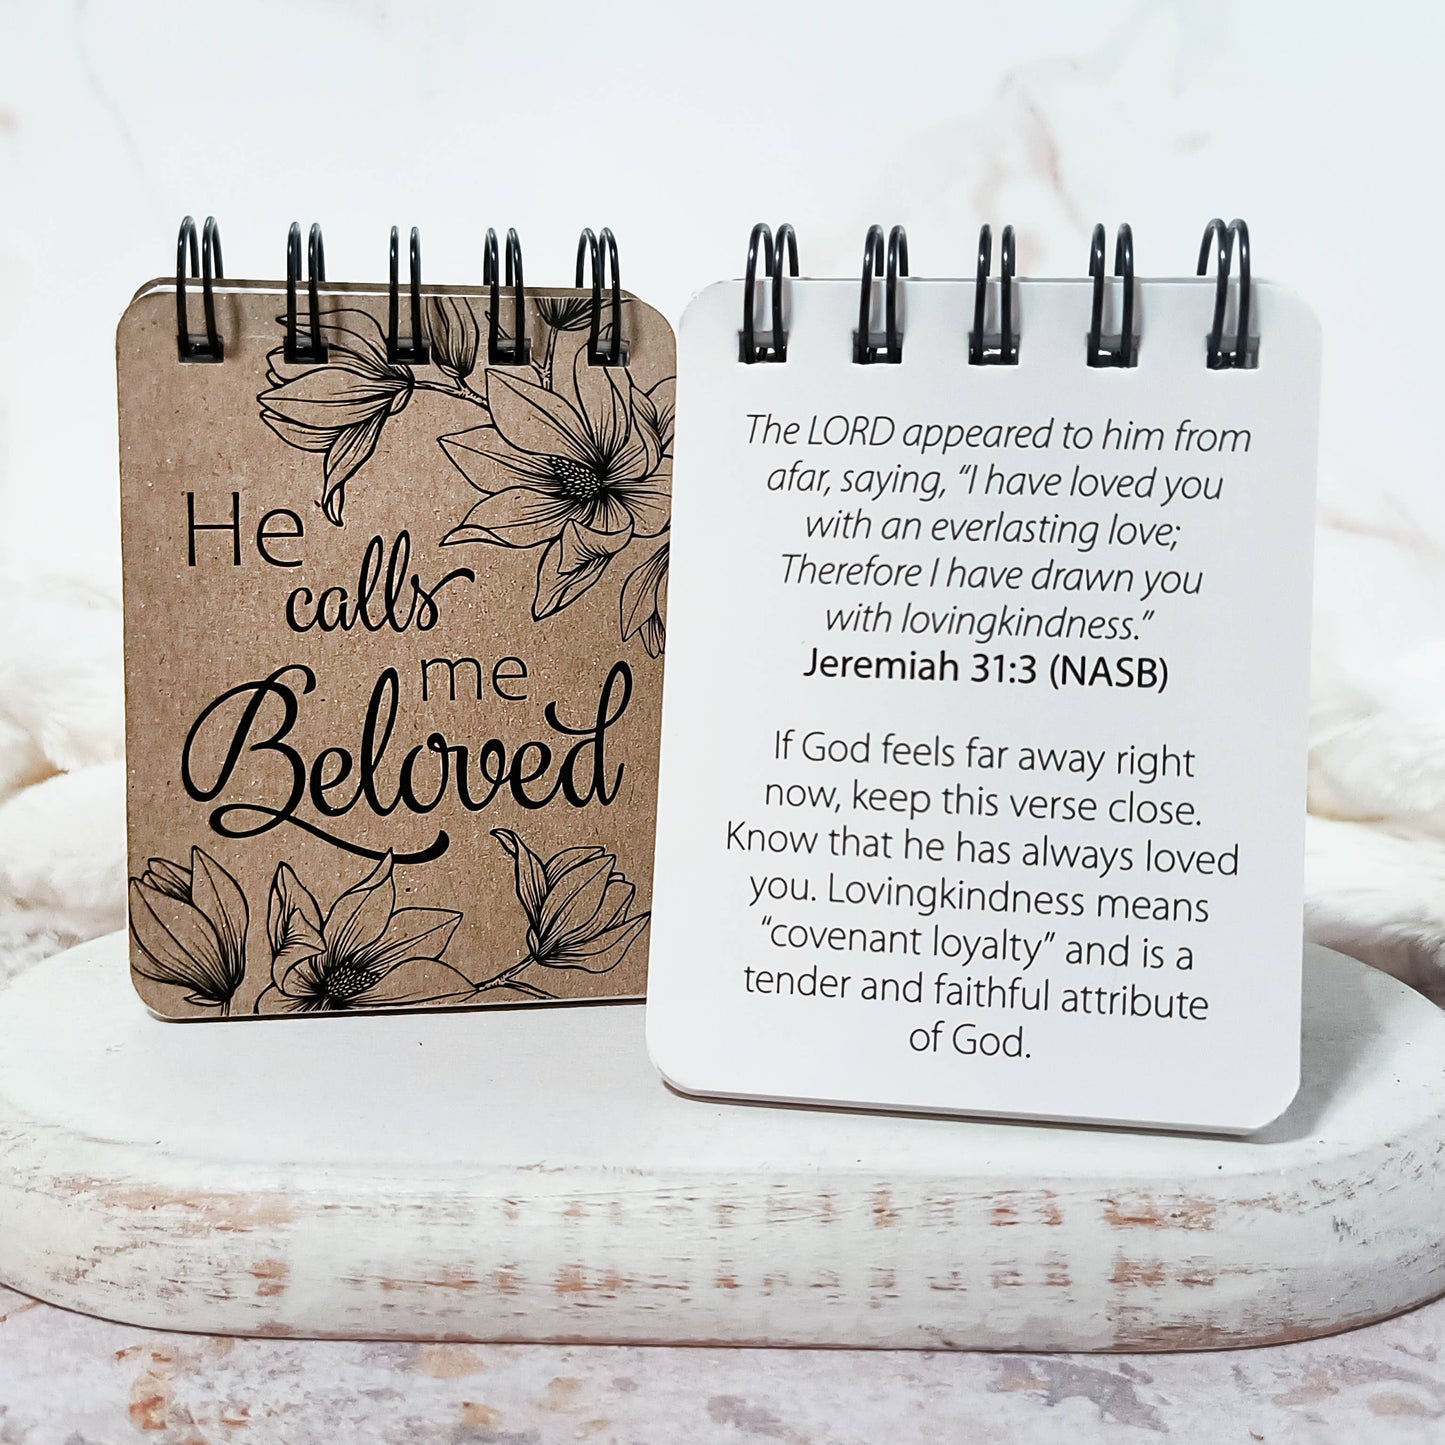 He
calls
me
Beloved
The LORD appeared to him from
afar, saying, “I have loved you
with an everlasting love;
Therefore I have drawn you
with lovingkindness.”
Jeremiah 31:3 (NASB)
If God feels far away right
now, keep this verse close.
Know that he has always loved
you. Lovingkindness means
“covenant loyalty” and is a
tender and faithful attribute
of God.